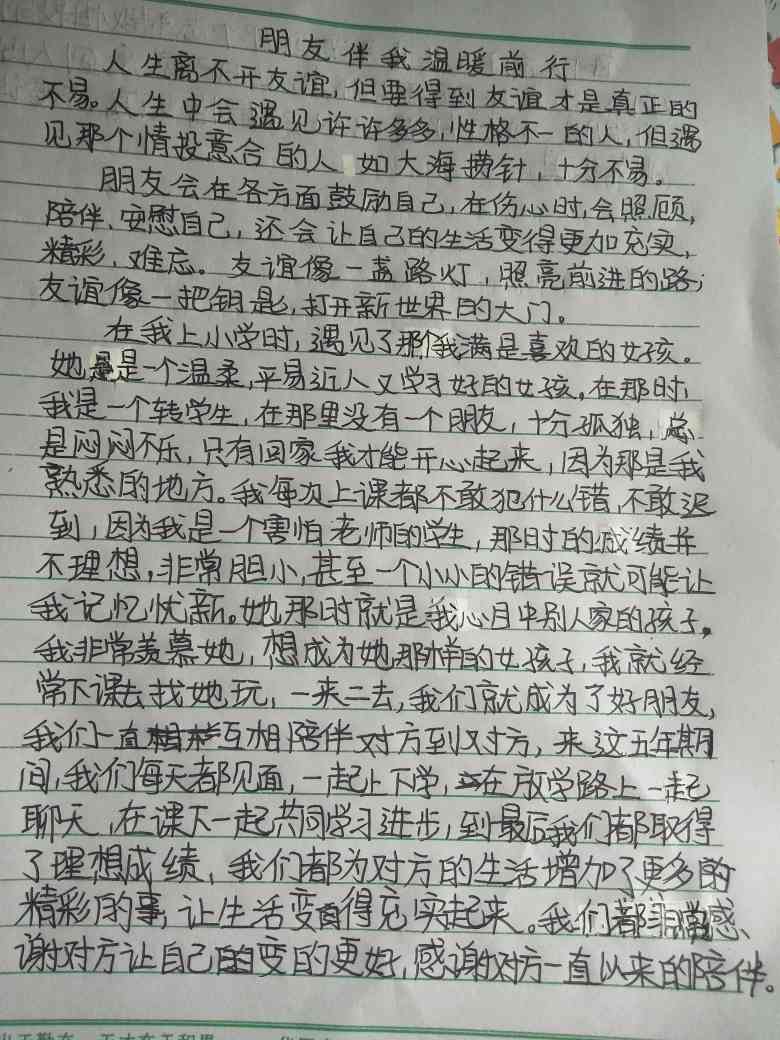 朋友伴我温暖前行
人生离不开友谊,但要得到友谊才是真正的
不易。人生中会遇见许许多多,性格不一的人,但遇
见那个情投意合的人如大海捞针,十分不易。
朋友会在各方面鼓励自己,在伤心时,会照顾,
陪伴、安慰自己,还会让自己的生活变得更加充实,
精彩,难忘。友谊像一盏路灯,照亮前进的路;
友谊像一把钥匙,打开新世界的大门。
在我上小学时,遇见了那个我满是喜欢的女孩。
她是一个温柔,平易近人又学习好的女孩。在那时,
我是一个转学生,在那里没有一个朋友,十分孤独,总
是闷闷不乐,只有回家我才能开心起来,因为那是我
熟悉的地方。我每次上课都不敢犯什么错,不敢迟
到,因为我是一个害怕老师的学生,那时的成绩并
不理想,非常胆小,甚至一个小小的错误就可能让
我记忆忧新。她那时就是我心目中别人家的孩子。
我非常羡慕她,想成为她那样的女孩子,我就经
常下课去找她玩,一来二去,我们就成为了好朋友,
我们一直互相陪伴对方到对方,来这五年期
间,我们每天都见面,一起上下学,在放学路上一起
聊天,在课下一起共同学习进步,到最后我们都取得
了理想成绩,我们都为对方的生活增加了更多的
精彩的事,让生活变得充实起来。我们都非常感
谢对方让自己的变的更好,感谢对方一直以来的陪伴。